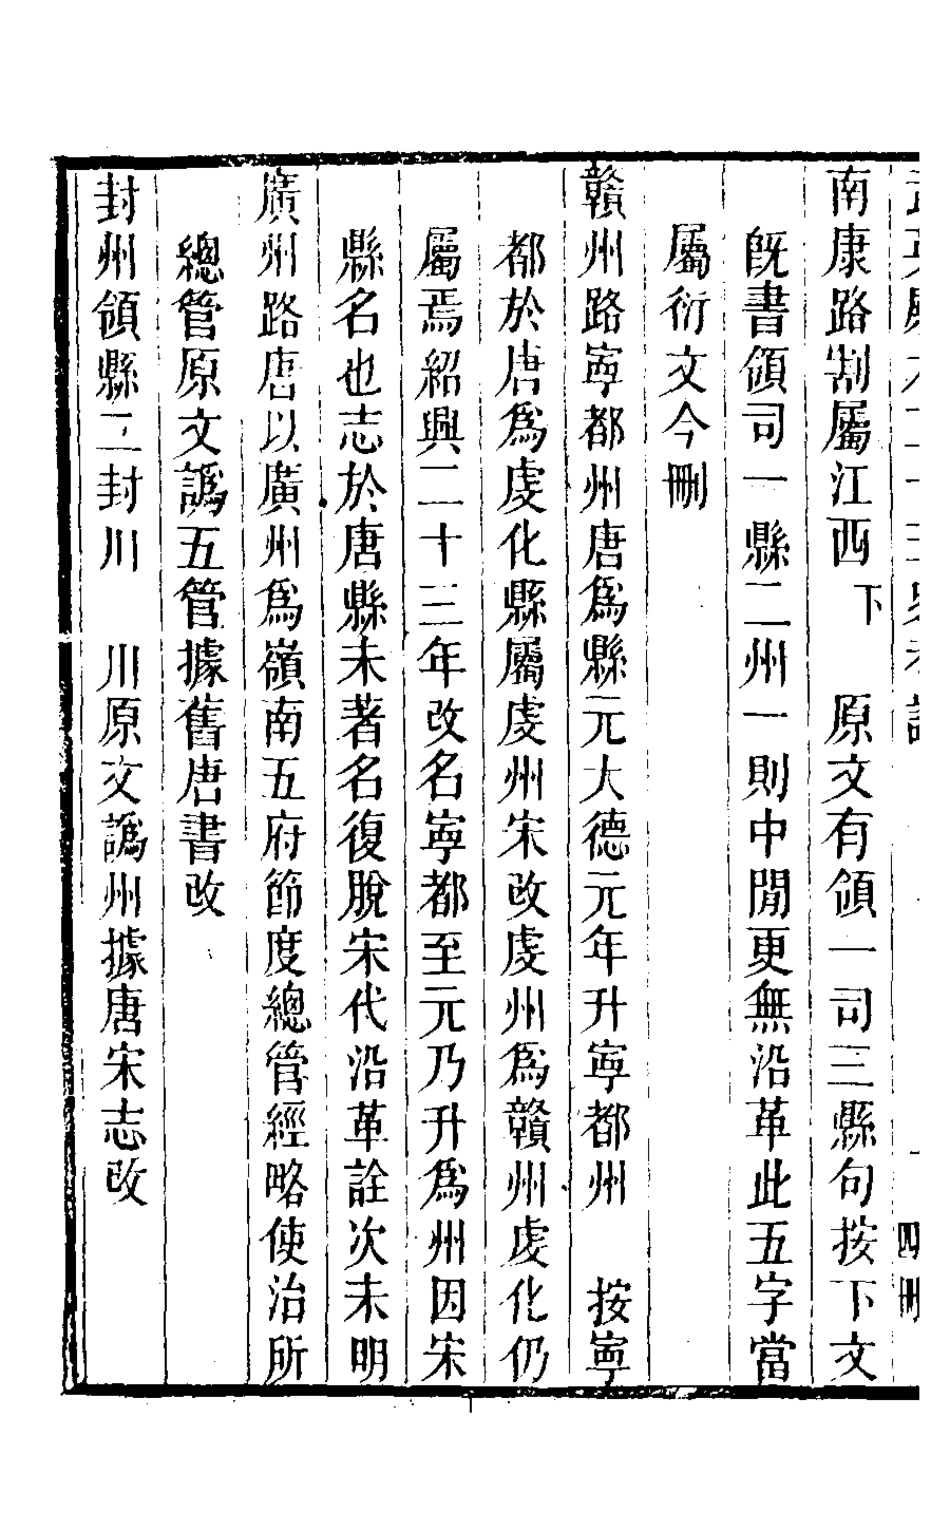 南康路割屬江西　下　原文有領一司三縣句按下文
既書領司一縣二州一則中閒更無沿革此五字當
屬衍文今刪
贛州路寧都州唐爲縣元大德元年升寧都州　按寧
都於唐爲虔化縣屬虔州宋改虔州爲贛州虔化仍
屬焉紹興二十三年改名寧都至元乃升爲州因宋
縣名也志於唐縣未著名復脫宋代沿革詮次未明
廣州路唐以廣州爲嶺南五府節度總管經略使治所
總管原文譌五管據舊唐書改
封州領縣二封川　川原文譌州據唐宋志改
四冊